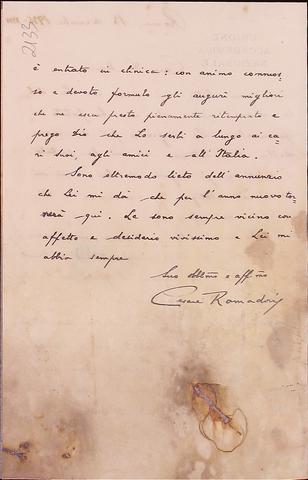 2133
è entrato in clinica: con animo commos-
so e devoto formulo gli auguri migliori
che ne esca presto pienamente ritemprato e
prego Dio che Lo serbi a lungo ai ca-
ri Suoi, agli amici e all'Italia.
Sono oltremodo lieto dell'annunzio
che Lei mi dà che per l'anno nuovo to-
rnerà qui. Le sono sempre vicino con
affetto e desiderio vivissimo e Lei mi
abbia sempre
Suo obblmo e affmo
Cesare